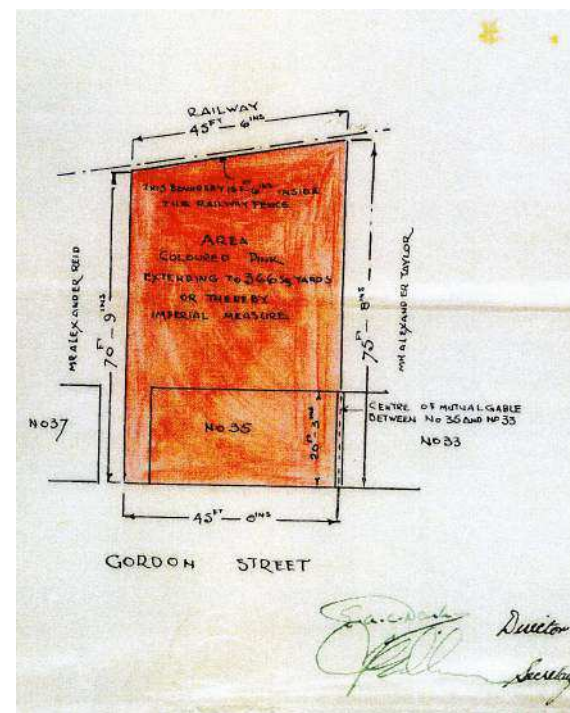 RAILWAY
45FT — 6INS
THIS BOUNDARY IS
INSIDE
THE RAILWAY FENCE
AREA
COLOURED PINK
EXTENDING TO 366 Sq YARDS
OR THEREBY
IMPERIAL MEASURE
MR ALEXANDER REID
70FT — 9INS
75FT — 8INS
MR ALEXANDER TAYLOR
NO 37
NO 35
20FT — 3INS
CENTRE OF MUTUAL GABLE
BETWEEN No 35 AND No 33
NO 33
45FT — 0INS
GORDON STREET
Director
Secretary